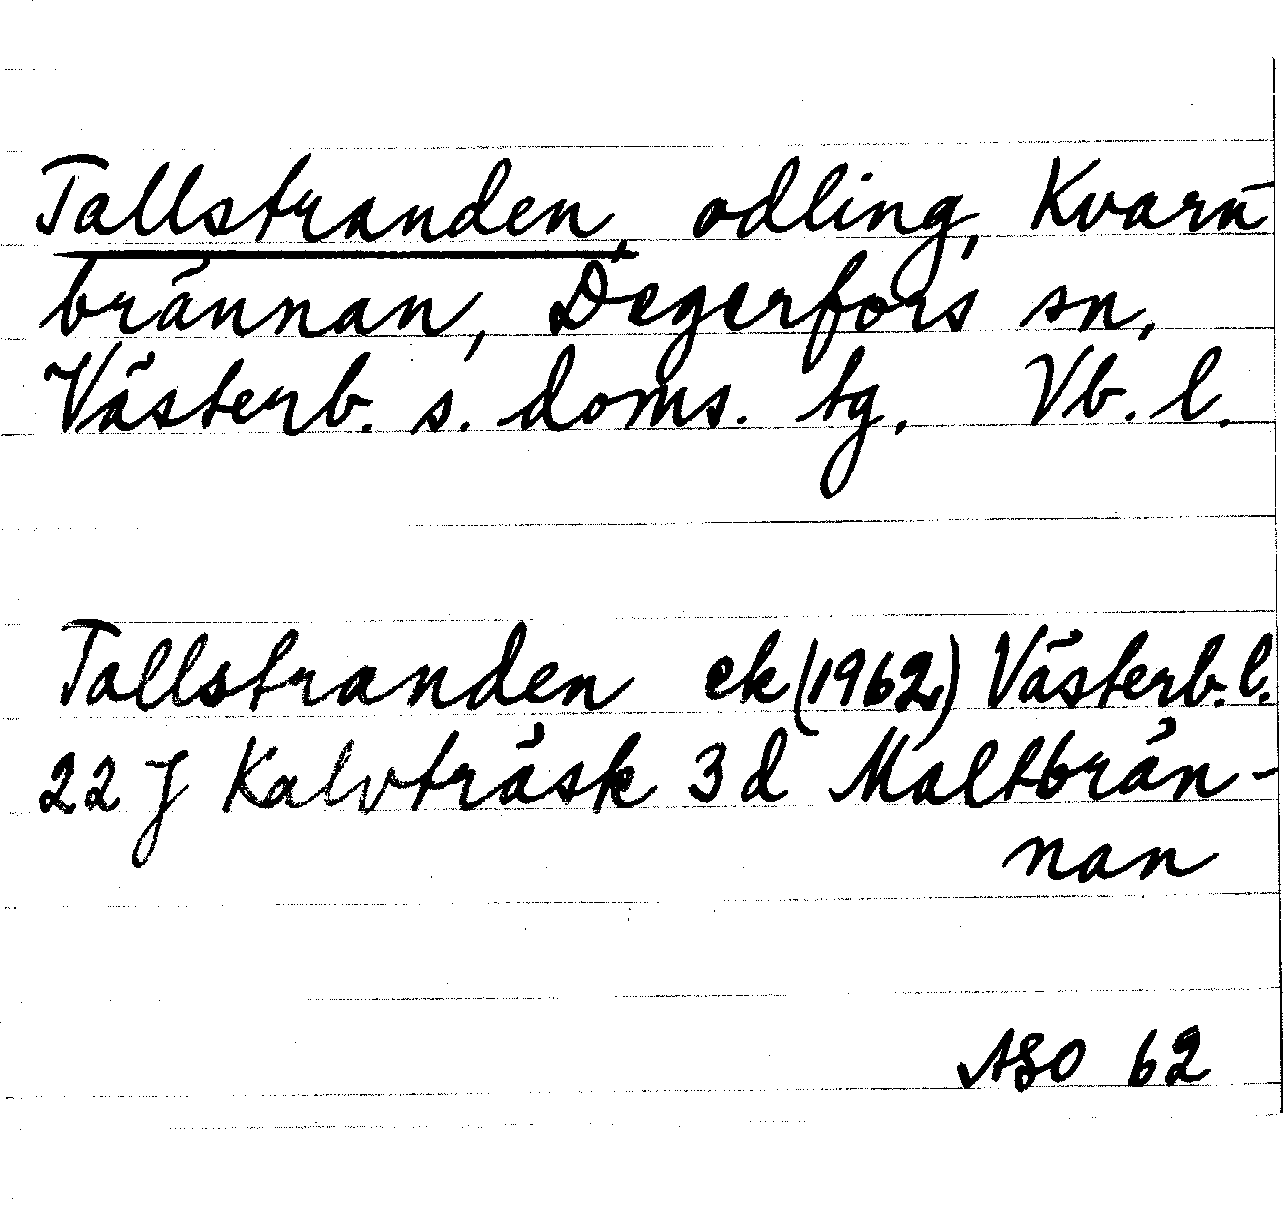 Tallstranden, odling, Kvarn-
brännan, Degerfors sn,
Västerb. s. doms. tg. Vb. l.
Tallstranden ek (1962) Västerb. l.
22 J Kalvträsk 3 d Maltbrän-
nan
ASO 62